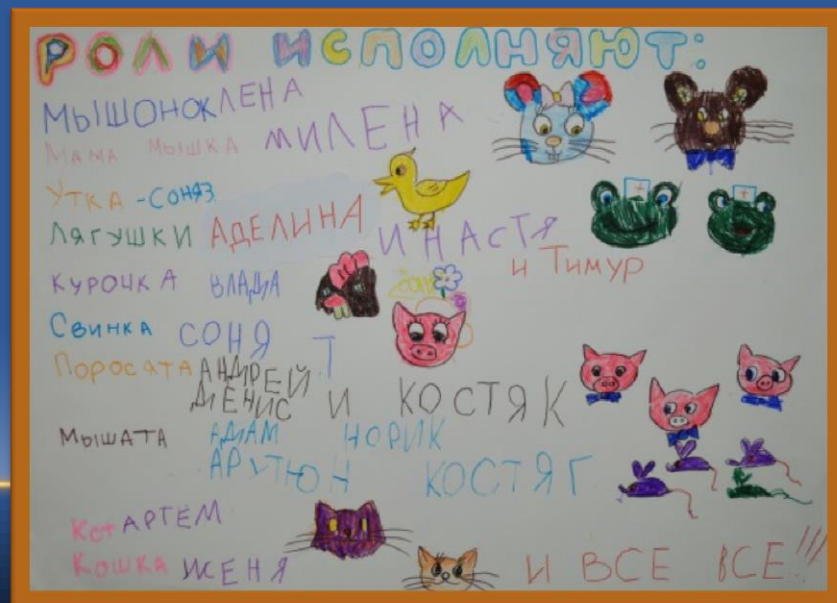 РОЛИ ИСПОЛНЯЮТ:
МЫШОНОК ЛЕНА
МАМА МЫШКА МИЛЕНА
УТКА - СОНЯ З
ЛЯГУШКИ АДЕЛИНА И НАСТЯ
и Тимур
КУРОЧКА ВЛАДА
СВИНКА СОНЯ Т
ПОРОСЯТА АНДРЕЙ
ДЕНИС И КОСТЯ К
МЫШАТА АДАМ НОРИК
АРУТЮН КОСТЯ Г
Кот АРТЕМ
Кошка ЖЕНЯ И ВСЕ ВСЕ!!!